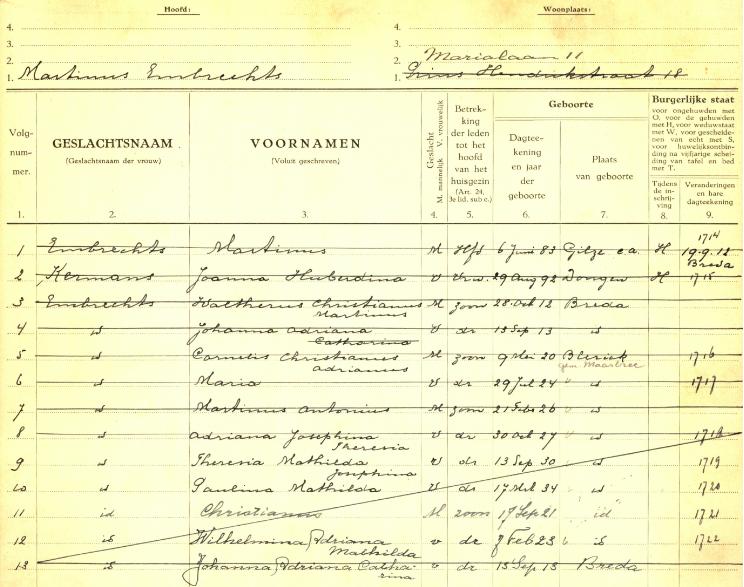 Hoofd:
Woonplaats:
4.
4.
3.
3.
2.
2. Marialaan 11
1. Martinus Embrechts
1. Prins Hendrikstraat 18
Volg-
num-
mer.
GESLACHTSNAAM
(Geslachtsnaam der vrouw)
VOORNAMEN
(Voluit geschreven)
Geslacht
M. mannelijk V. vrouwelijk
Betrek-
king
der leden
tot het
hoofd
van het
huisgezin
(Art. 24,
3e lid, sub c.)
Geboorte
Dagtee-
kening
en jaar
der
geboorte
Plaats
van geboorte
Burgerlijke staat
voor ongehuwden met
O, voor de gehuwden
met H, voor weduwstaat
met W, voor gescheide-
nen van echt met S,
voor huwelijksontbin-
ding na vijfjarige schei-
ding van tafel en bed
met T.
Tijdens
de in-
schrij-
ving
Veranderingen
en hare
dagteekening
1. 2. 3. 4. 5. 6. 7. 8. 9.
1714
1 Embrechts Martinus M Hfd 6 Juni 83 Gilze e.a. H 19.9.12
Breda
2 Kermans Joanna Huberdina v Vrw. 29 Aug 92 Dongen H 1715
3 Embrechts Waltherus Christianus M zoon 28 Oct 12 Breda
Martinus
4 id Johanna Adriana v dr 13 Sep 13 id
Catharina
5 id Cornelis Christianus M zoon 9 Mei 20 Blerick 1716
Adrianus gem Maasbree
6 id Maria v dr 29 Jul 24 id 1717
7 id Martinus Antonius M zoon 21 Feb 26 id
8 id Adriana Josephina v dr 30 Oct 27 id 1718
Theresia
9 id Theresia Mathilda v dr 13 Sep 30 id 1719
Josephina
10 id Paulina Mathilda v dr 34 id 1720
11 id Christianus M zoon 17 Sep 21 id 1721
12 id Wilhelmina Adriana v dr 8 Feb 23 is 1722
Mathilda
13 id Johanna Adriana Catha- v dr 13 Sep 13 Breda
rina